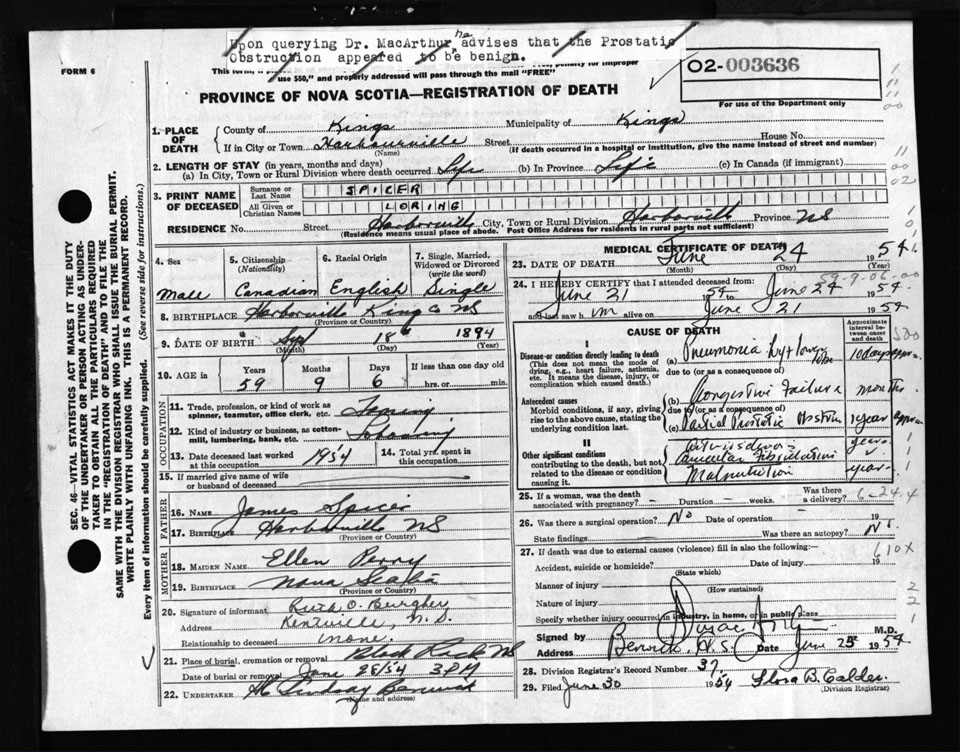 Upon querying Dr. MacArthur he advises that the Prostatic
Obstruction appeared to be benign.
FORM 6
use $50," and properly addressed will pass through the mail "FREE"
O2-003636
For use of the Department only
PROVINCE OF NOVA SCOTIA—REGISTRATION OF DEATH
1. PLACE OF DEATH
County of Kings Municipality of Kings
If in City or Town Harbourville Street House No.
(Name) (If death occurred in a hospital or institution, give the name instead of street and number)
2. LENGTH OF STAY (in years, months and days)
(a) In City, Town or Rural Division where death occurred Life (b) In Province Life (c) In Canada (if immigrant)
3. PRINT NAME OF DECEASED
Surname or Last Name SPICER
All Given or Christian Names LORING
RESIDENCE No. Street Harborville City, Town or Rural Division Harborville Province NS
(Residence means usual place of abode. Post Office Address for residents in rural parts not sufficient)
4. Sex
Male
5. Citizenship (Nationality)
Canadian
6. Racial Origin
English
7. Single, Married, Widowed or Divorced (write the word)
Single
8. BIRTHPLACE Harborville Kings Co NS
(Province or Country)
9. DATE OF BIRTH Sept 18 1894
(Month) (Day) (Year)
10. AGE in Years Months Days If less than one day old
59 9 6 hrs. or min.
OCCUPATION
11. Trade, profession, or kind of work as spinner, teamster, office clerk, etc.
12. Kind of industry or business, as cotton-mill, lumbering, bank, etc.
13. Date deceased last worked at this occupation 1954
14. Total yrs. spent in this occupation
15. If married give name of wife or husband of deceased
FATHER
16. NAME James Spicer
17. BIRTHPLACE Harborville NS
(Province or Country)
MOTHER
18. MAIDEN NAME Ellen Perry
19. BIRTHPLACE Nova Scotia
(Province or Country)
20. Signature of informant Ruth O. Burgher
Address Kentville, N.S.
Relationship to deceased none.
21. Place of burial, cremation or removal Black Rock NS
Date of burial or removal June 26/54 3 PM
22. UNDERTAKER H Lindsay Berwick
(Name and address)
MEDICAL CERTIFICATE OF DEATH
23. DATE OF DEATH June 24 1954
(Month) (Day) (Year)
59-9-06-00
24. I HEREBY CERTIFY that I attended deceased from:
June 21 1954 to June 24 1954
and last saw h im alive on June 21 1954
CAUSE OF DEATH
Approximate interval between onset and death
I
Disease or condition directly leading to death
(This does not mean the mode of dying, e.g., heart failure, asthenia, etc. It means the disease, injury, or complication which caused death.)
(a) Pneumonia Lt lower lobe 10 days approx.
due to (or as a consequence of)
Antecedent causes
Morbid conditions, if any, giving rise to the above cause, stating the underlying condition last.
(b) Congestive Failure months
due to (or as a consequence of)
(c) Partial Prostatic Obstrn 1 year approx
II
Other significant conditions contributing to the death, but not related to the disease or condition causing it.
Arteriosclerosis years
Auricular Fibrillation
Malnutrition years
25. If a woman, was the death associated with pregnancy? Duration weeks. Was there a delivery?
6-24-4
26. Was there a surgical operation? No Date of operation 19
State findings Was there an autopsy? No
27. If death was due to external causes (violence) fill in also the following:—
610X
Accident, suicide or homicide? Date of injury 19
(State which)
Manner of injury
(How sustained)
Nature of injury
Specify whether injury occurred in industry, in home, or in public place
Signed by M.D.
Address Berwick, N.S. Date June 25 1954
28. Division Registrar's Record Number 37.
29. Filed June 30 1954 Flora B. Calder
(Division Registrar)
SEC. 46—VITAL STATISTICS ACT MAKES IT THE DUTY
OF THE UNDERTAKER OR PERSON ACTING AS UNDERTAKER
TO OBTAIN ALL THE PARTICULARS REQUIRED
IN THE "REGISTRATION OF DEATH" AND TO FILE THE
SAME WITH THE DIVISION REGISTRAR WHO SHALL ISSUE THE BURIAL PERMIT.
WRITE PLAINLY WITH UNFADING INK. THIS IS A PERMANENT RECORD.
Every item of information should be carefully supplied. (See reverse side for instructions.)